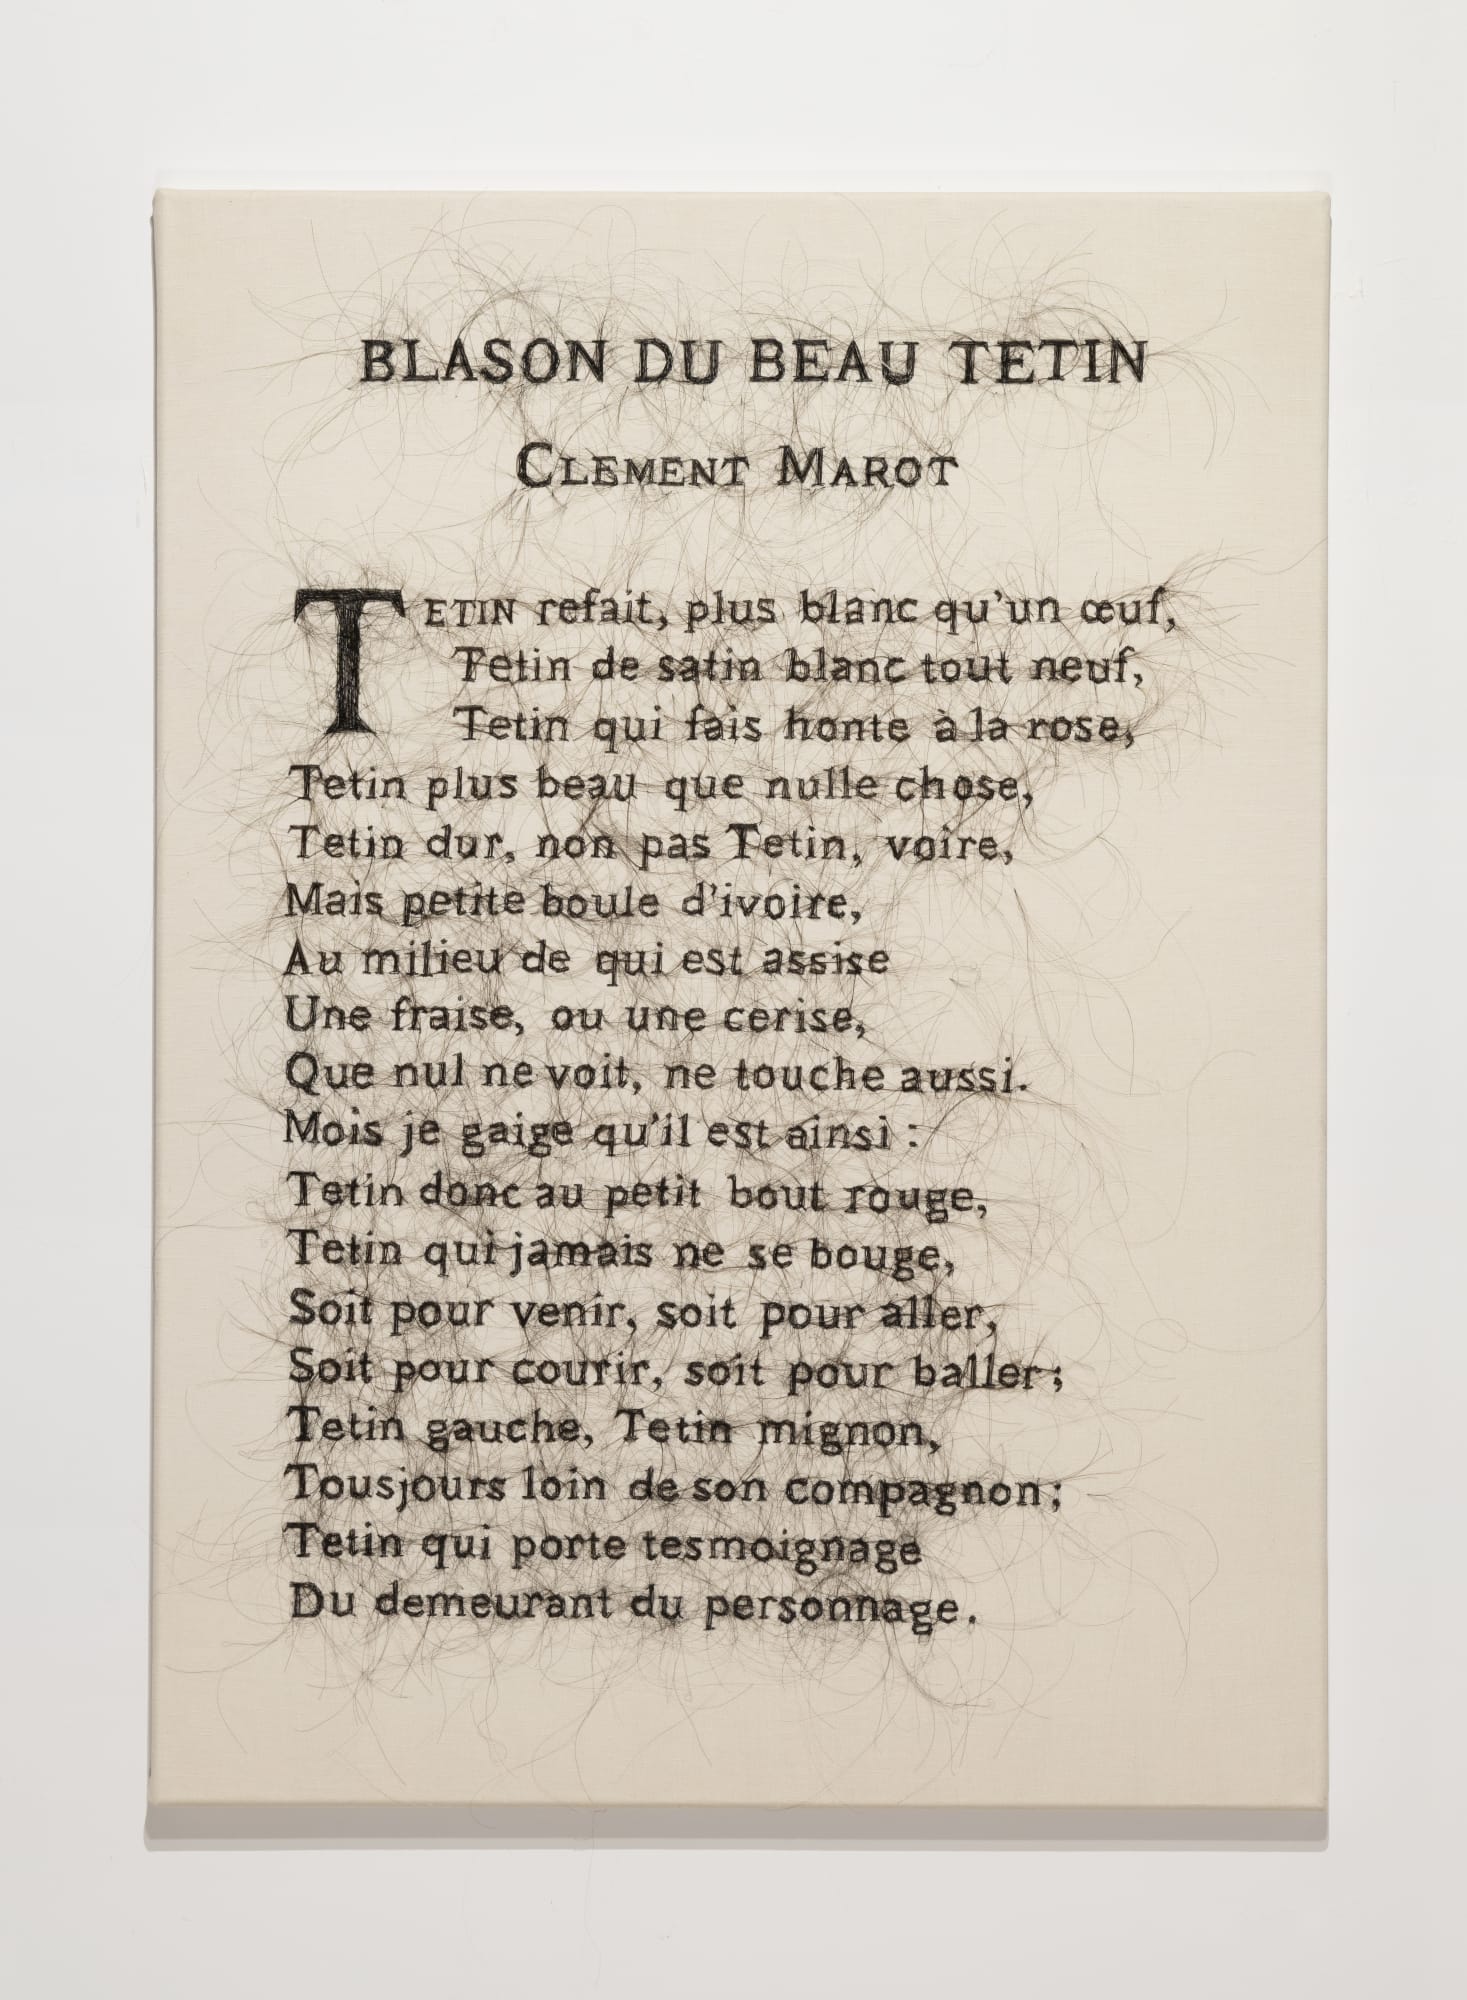 BLASON DU BEAU TETIN
CLEMENT MAROT
TETIN refait, plus blanc qu'un œuf,
Tetin de satin blanc tout neuf,
Tetin qui fais honte à la rose,
Tetin plus beau que nulle chose,
Tetin dur, non pas Tetin, voire,
Mais petite boule d'ivoire,
Au milieu de qui est assise
Une fraise, ou une cerise,
Que nul ne voit, ne touche aussi.
Mois je gaige qu'il est ainsi :
Tetin donc au petit bout rouge,
Tetin qui jamais ne se bouge,
Soit pour venir, soit pour aller,
Soit pour courir, soit pour baller;
Tetin gauche, Tetin mignon,
Tousjours loin de son compagnon;
Tetin qui porte tesmoignage
Du demeurant du personnage.